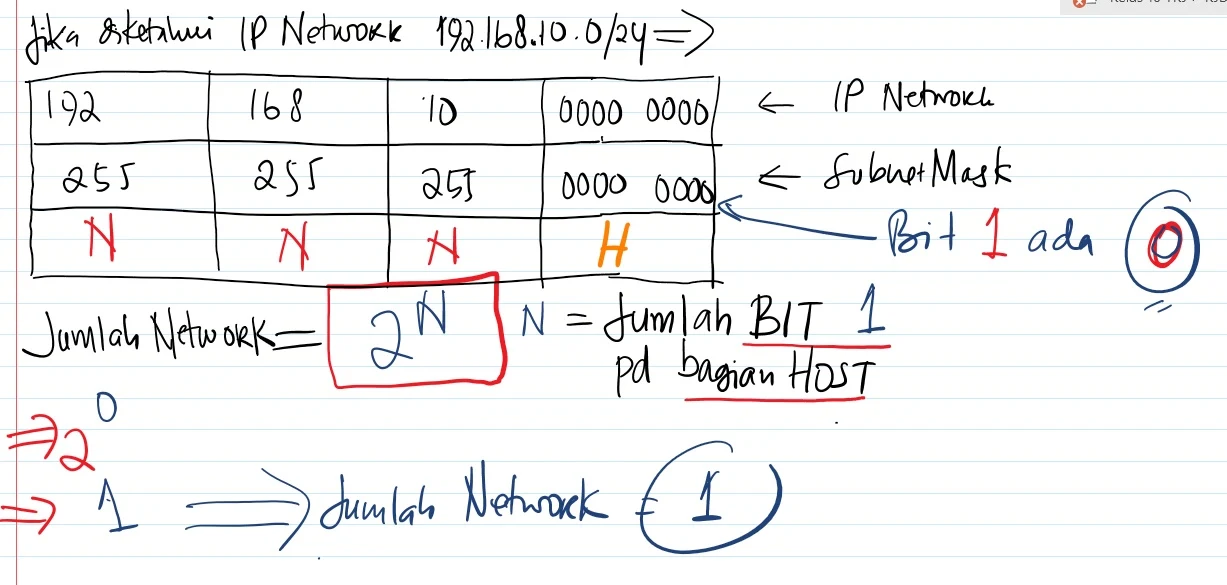 Jika diketahui IP Network 192.168.10.0/24 =>
192 168 10 0000 0000 ← IP Network
255 255 255 0000 0000 ← Subnet Mask
N N N H ← Bit 1 ada 0
Jumlah Network = 2^N N = Jumlah BIT 1
pd bagian HOST
=> 2^0
=> 1 => Jumlah Network = 1